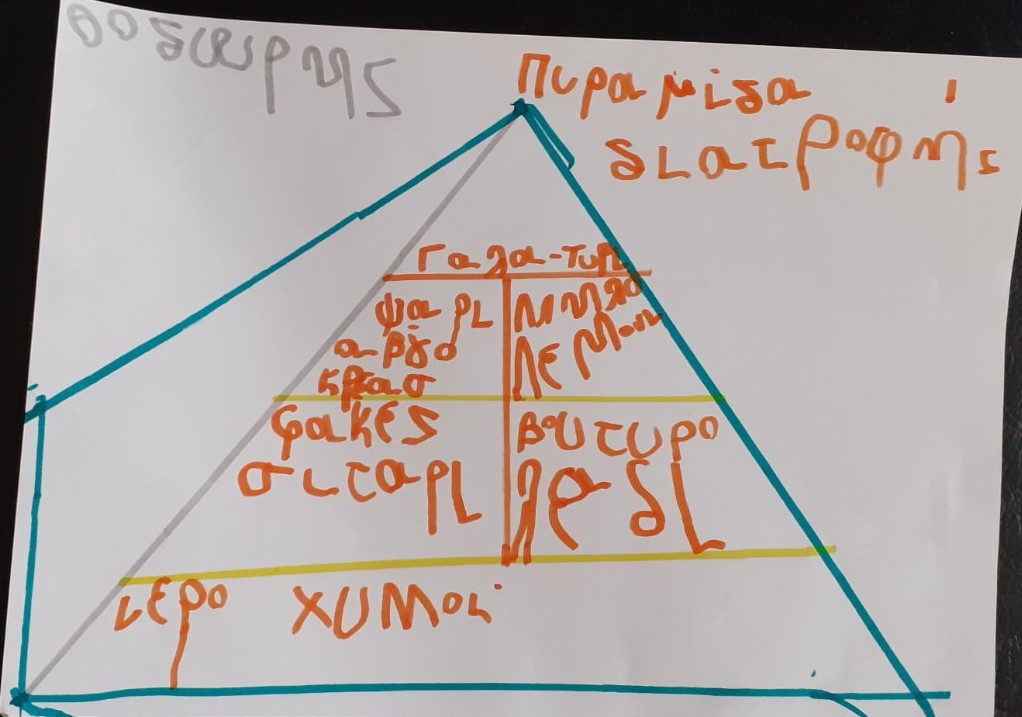 θοδωρης
Πυραμιδα
διατροφής
Γαλα-τυρι
ψαρι
αβγο
κρεασ
μηλο
λεμονι
φακες
σιταρι
βουτυρο
λαδι
νερο χυμοί